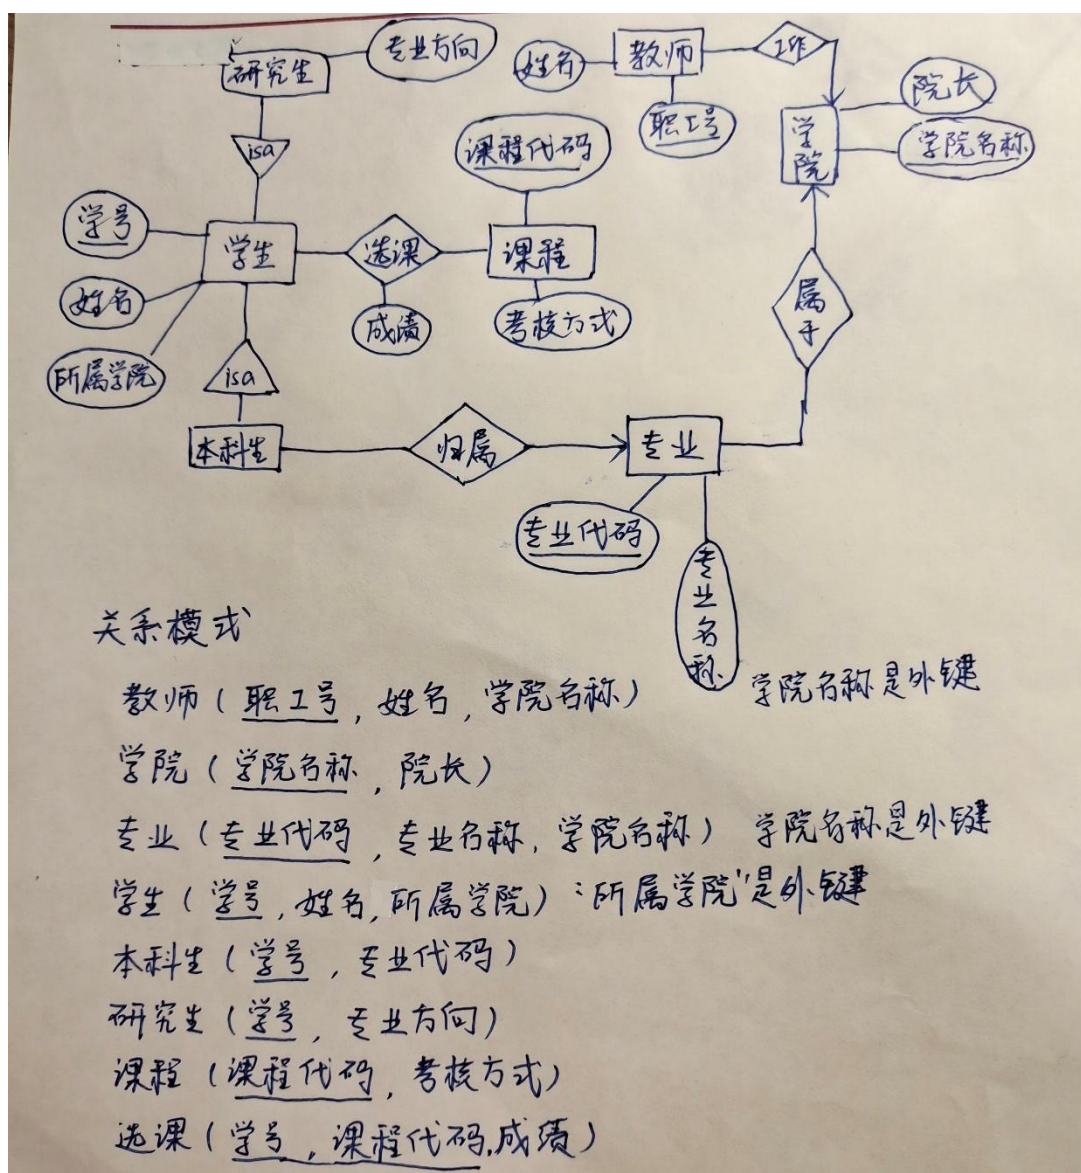 研究生
专业方向
姓名
教师
工作
职工号
院长
学院
学院名称
isa
课程代码
学号
学生
选课
课程
姓名
成绩
考核方式
所属学院
isa
属于
本科生
归属
专业
专业代码
专业名称
关系模式
教师(职工号,姓名,学院名称) 学院名称是外键
学院(学院名称,院长)
专业(专业代码,专业名称,学院名称) 学院名称是外键
学生(学号,姓名,所属学院)“所属学院”是外键
本科生(学号,专业代码)
研究生(学号,专业方向)
课程(课程代码,考核方式)
选课(学号,课程代码,成绩)